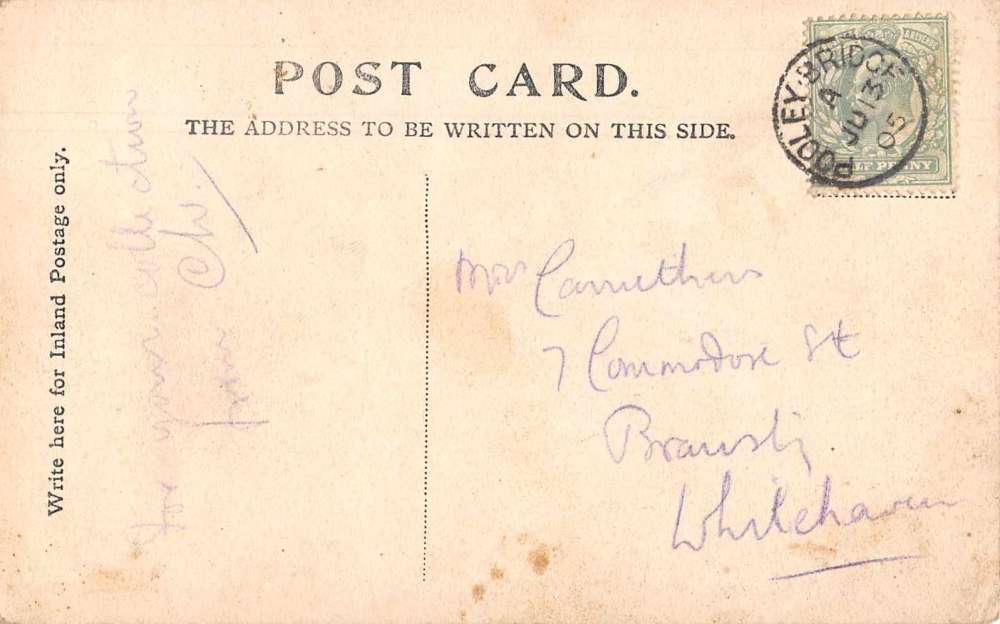 POST CARD.
THE ADDRESS TO BE WRITTEN ON THIS SIDE.
Write here for Inland Postage only.
for your collection
from
C.W.
POOLEY·BRIDGE
A
JU 13
05
HALF PENNY
Mrs Carruthers
7 Commodore St
Bransty
Whitehaven